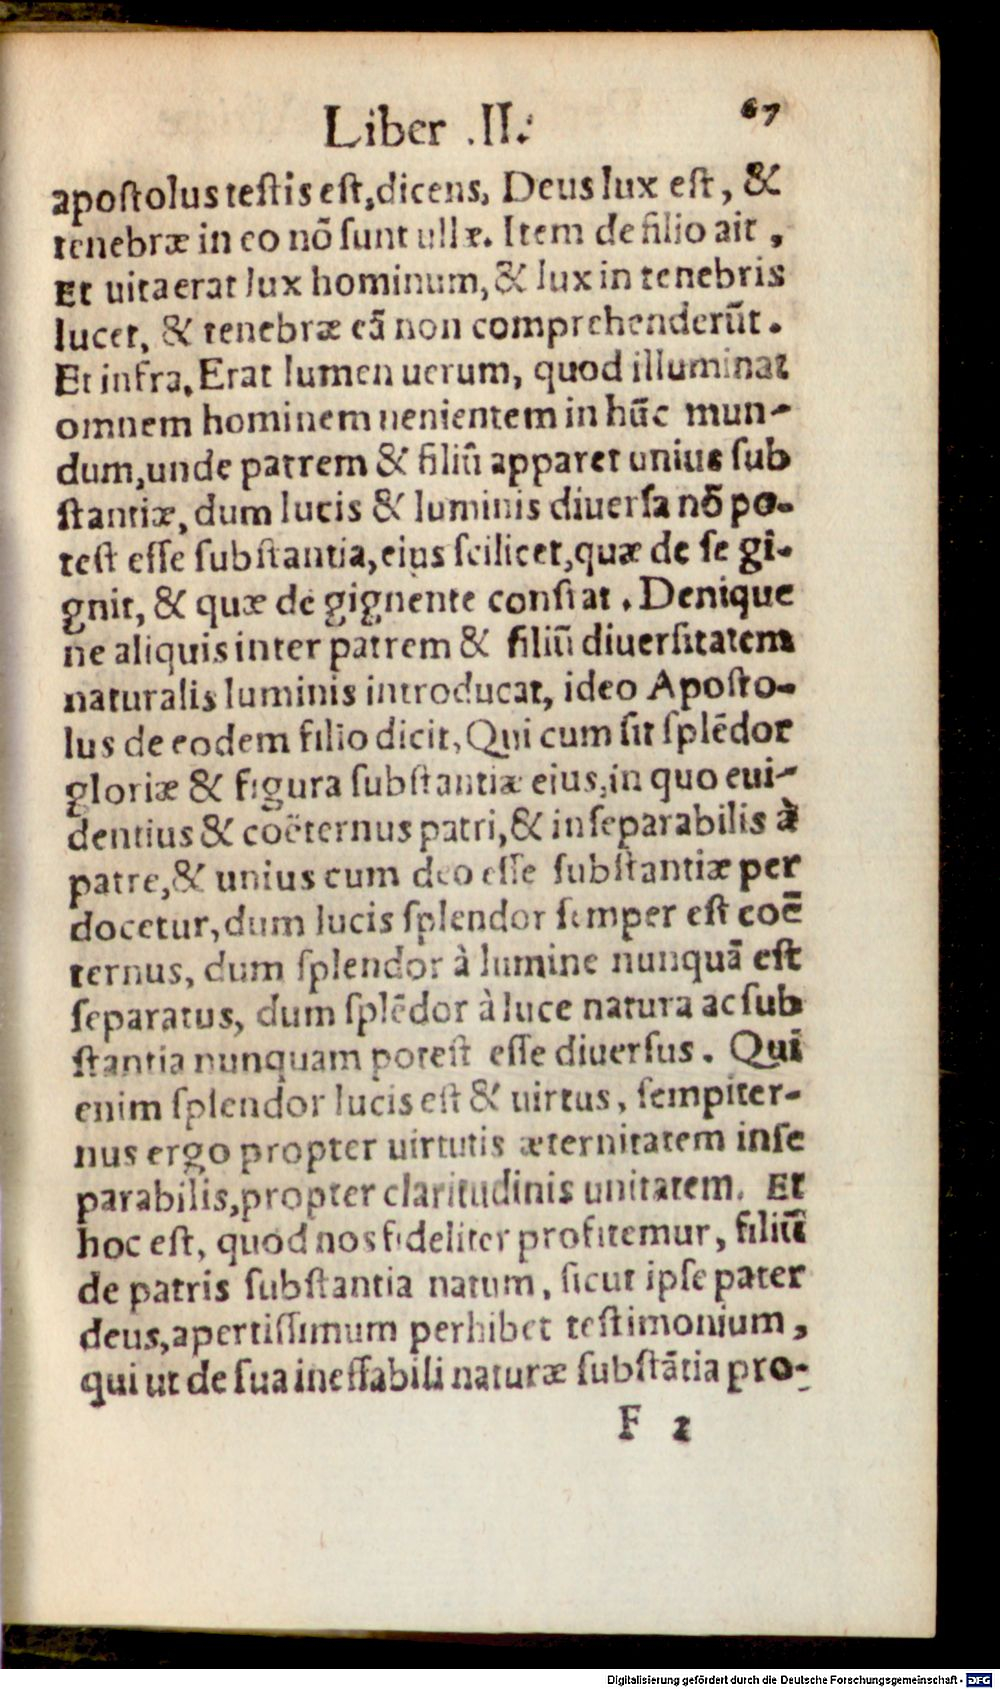 Liber .II.
67
apoſtolus teſtis eſt, dicens, Deus lux eſt, &
tenebræ in eo nõ ſunt ullæ. Item de filio ait,
Et uita erat lux hominum, & lux in tenebris
lucet, & tenebræ eã non comprehenderũt.
Et infra, Erat lumen uerum, quod illuminat
omnem hominem uenientem in hũc mun-
dum, unde patrem & filiũ apparet unius ſub
ſtantiæ, dum lucis & luminis diuerſa nõ po-
teſt eſſe ſubſtantia, eius ſcilicet, quæ de ſe gi-
gnit, & quæ de gignente conſtat. Denique
ne aliquis inter patrem & filiũ diuerſitatem
naturalis luminis introducat, ideo Apoſto-
lus de eodem filio dicit, Qui cum ſit ſplẽdor
gloriæ & figura ſubſtantiæ eius, in quo eui-
dentius & coëternus patri, & inſeparabilis à
patre, & unius cum deo eſſe ſubſtantiæ per
docetur, dum lucis ſplendor ſemper eſt coẽ
ternus, dum ſplendor à lumine nunquã eſt
ſeparatus, dum ſplẽdor à luce natura ac ſub
ſtantia nunquam poteſt eſſe diuerſus. Qui
enim ſplendor lucis eſt & uirtus, ſempiter-
nus ergo propter uirtutis æternitatem inſe
parabilis, propter claritudinis unitatem. Et
hoc eſt, quod nos fideliter profitemur, filiũ
de patris ſubſtantia natum, ſicut ipſe pater
deus, apertiſſimum perhibet teſtimonium,
qui ut de ſua ineffabili naturæ ſubſtãtia pro-
F 2
Digitalisierung gefördert durch die Deutsche Forschungsgemeinschaft - DFG